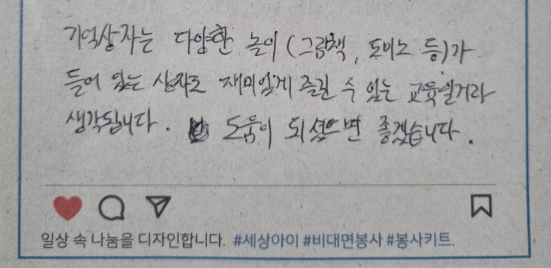 기억상자는 다양한 놀이 (그림책, 도미노 등)가
들어 있는 상자로 재미있게 즐길 수 있는 교육일거라
생각됩니다. 도움이 되셨으면 좋겠습니다.
일상 속 나눔을 디자인합니다. #세상아이 #비대면봉사 #봉사키트.